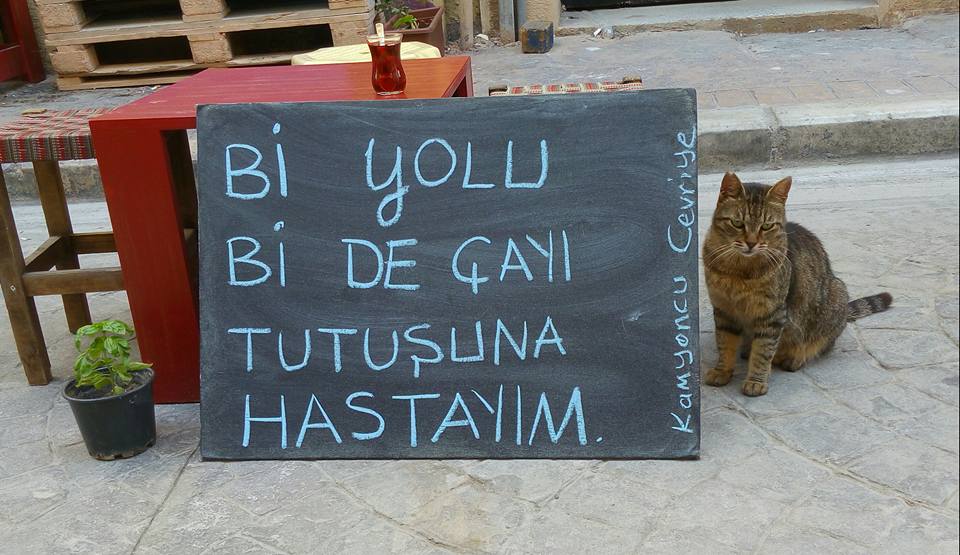 Bİ YOLU
Bİ DE ÇAYI
TUTUŞUNA
HASTAYIM.
Kamyoncu Cevriye